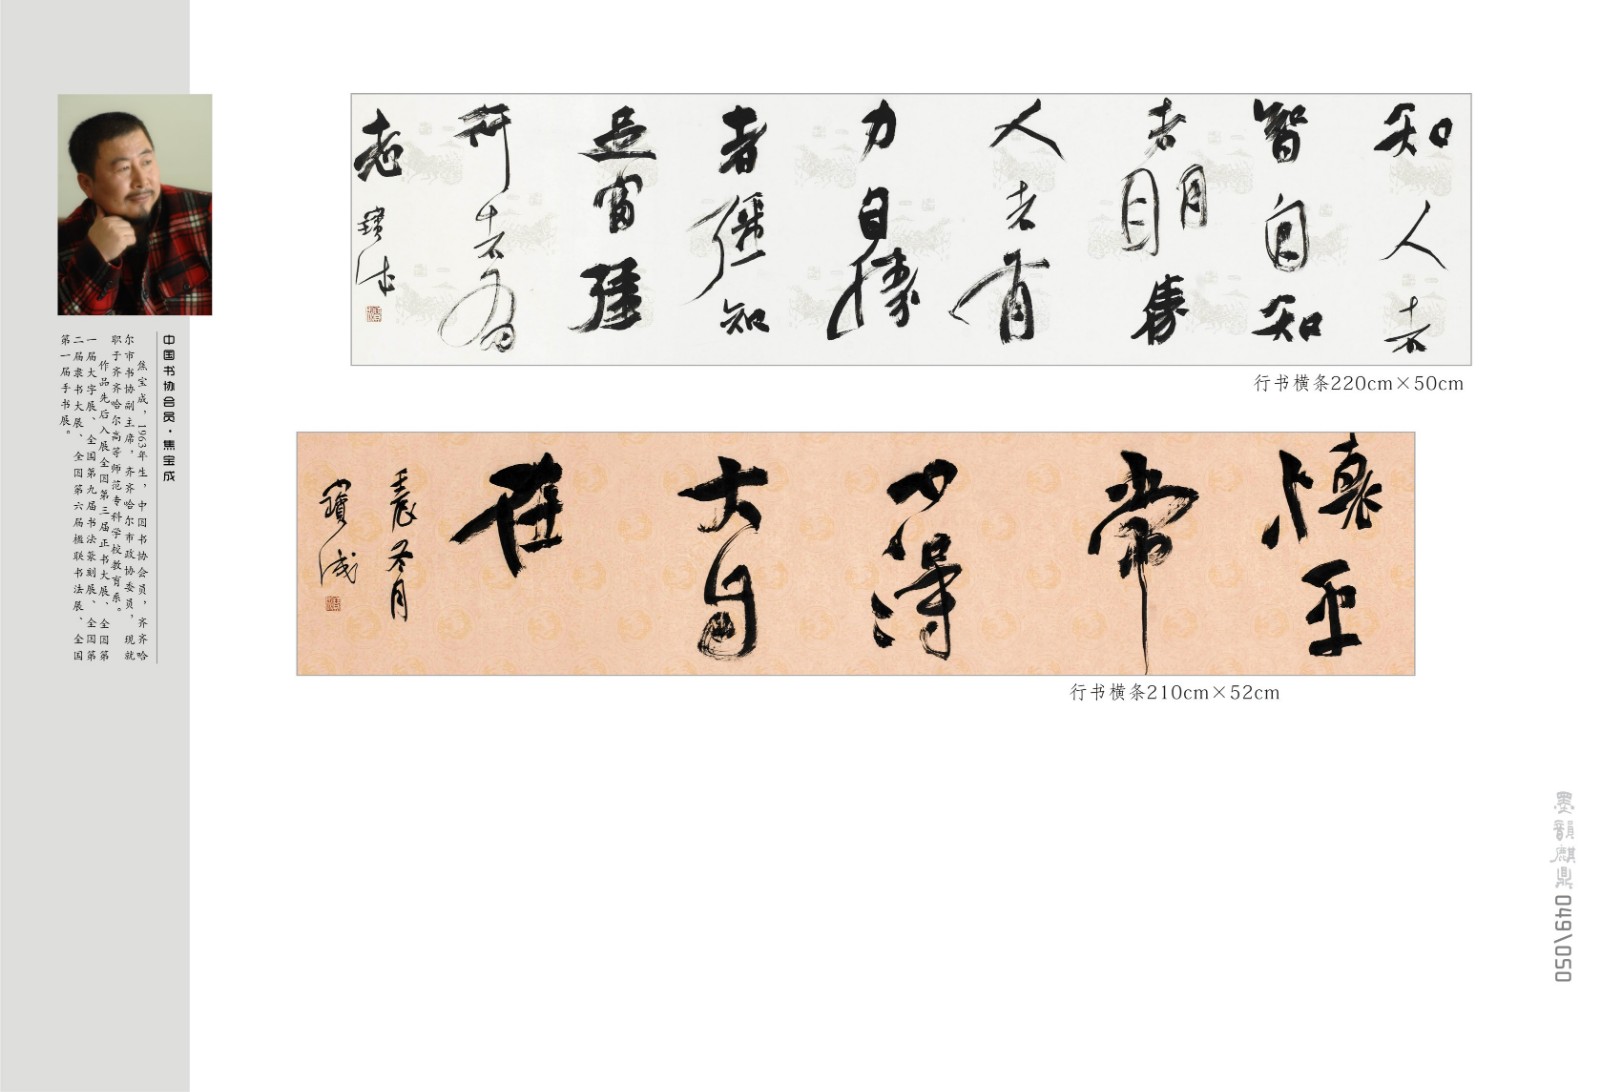 中国书协会员·焦宝成
焦宝成，1963年生，中国书协会员，齐齐哈
尔市书协副主席，齐齐哈尔市政协委员，现就
职于齐齐哈尔高等师范专科学校教育系。
作品先后入展全国第三届正书大展、全国第
一届大字展、全国第九届书法篆刻展、全国第
二届隶书大展、全国第六届楹联书法展、全国
第一届手书展。
知人者
智自知
者明勝
人者有
力自勝
者強知
足富強
行者有
志
寶成
行书横条220cm×50cm
懷平
常
心得
大自
在
壬辰冬月
寶成
行书横条210cm×52cm
墨韻麒鼎 049\050